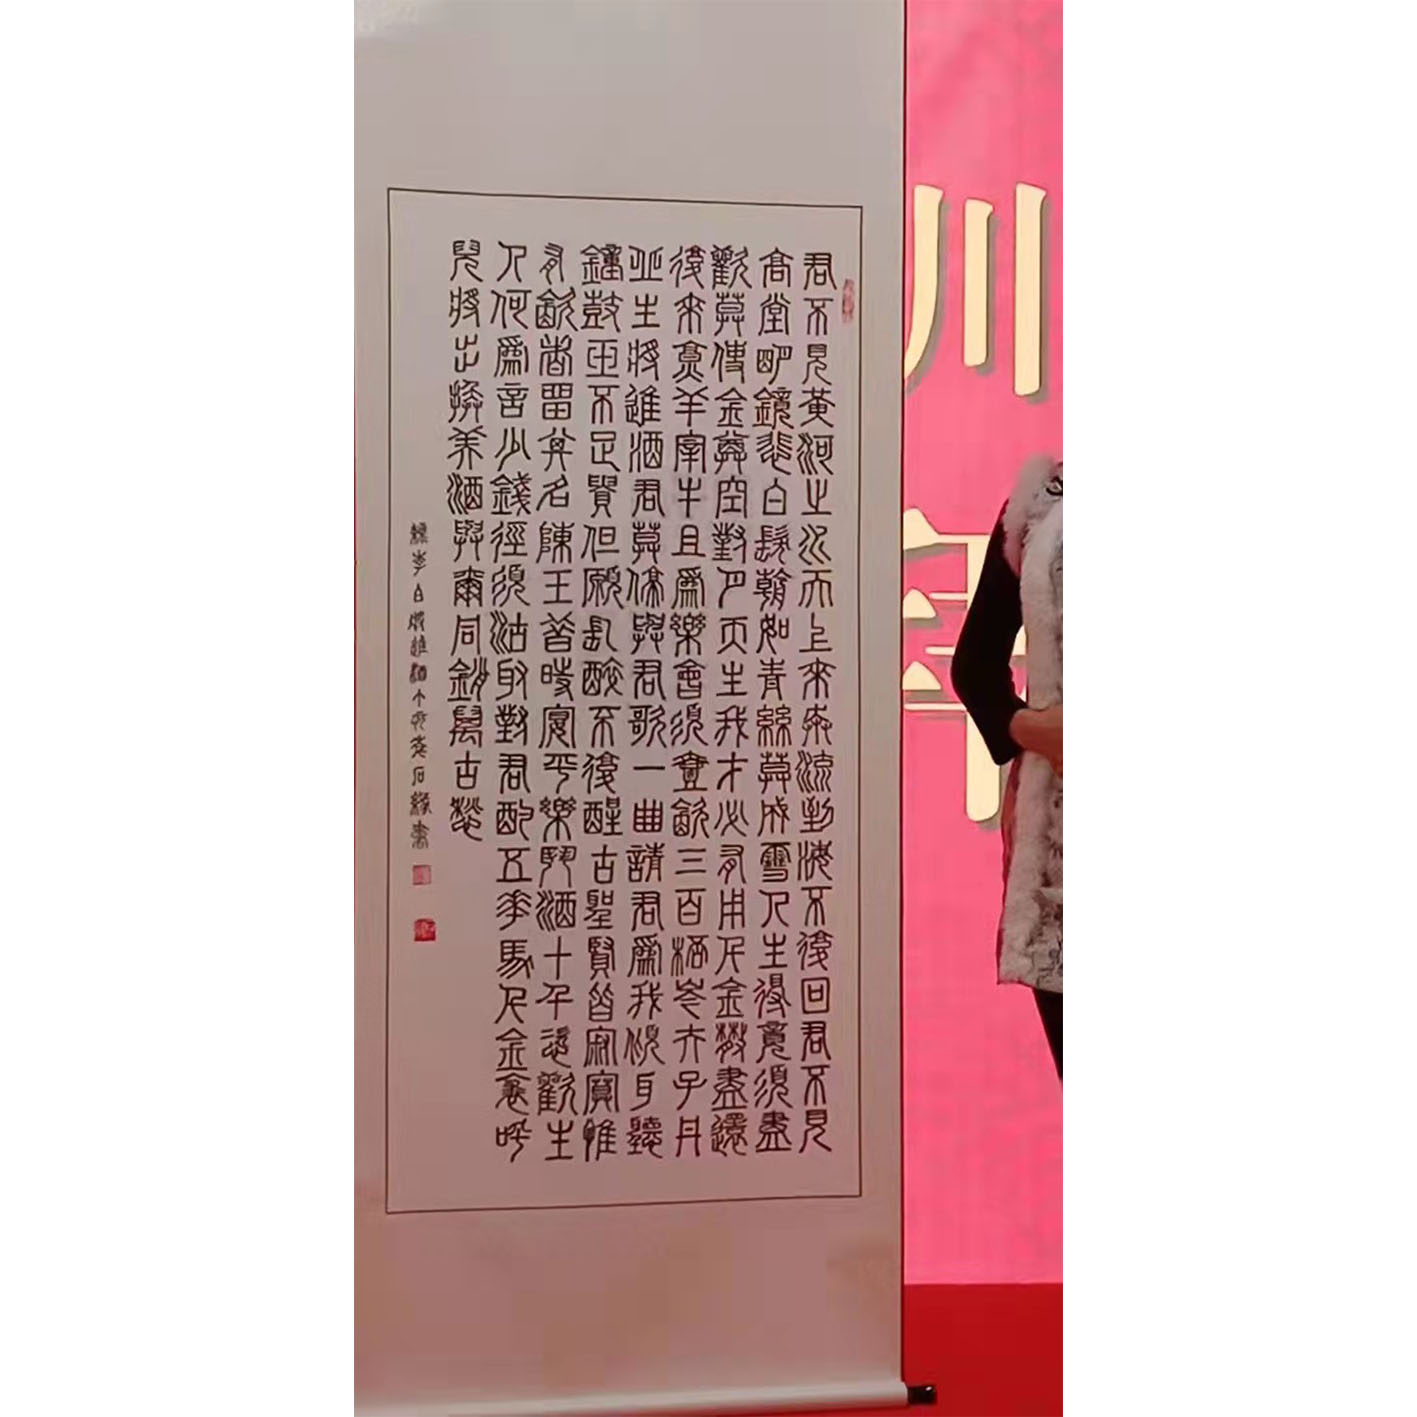 君不見黃河之水天上來奔流到海不復回君不見
高堂明鏡悲白髮朝如青絲莫成雪人生得意須盡
歡莫使金尊空對月天生我才必有用千金散盡還
復來烹羊宰牛且為樂會須壹飲三百杯岑夫子丹
丘生將進酒君莫停與君歌一曲請君為我傾耳聽
鐘鼓玉不足貴但願長醉不復醒古聖賢皆寂寞惟
有飲者留其名陳王昔時宴平樂鬥酒十千恣歡主
人何為言少錢徑須沽取對君酌五花馬千金裘呼
兒將出換美酒與爾同銷萬古愁
錄李白將進酒
川